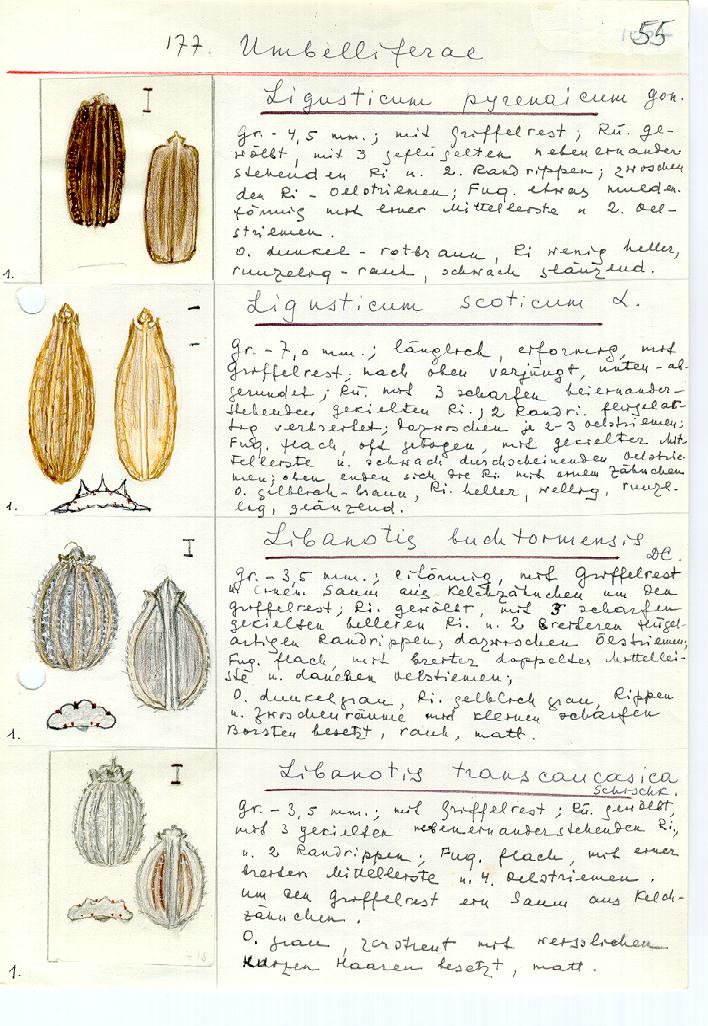 177. Umbelliferae
55
Ligusticum pyrenaicum gon.
Gr. - 4,5 mm.; mit Griffelrest; Rü. ge-
wölbt, mit 3 geflügelten nebeneinander
stehenden Ri u. 2. Randrippen; zwischen
den Ri - Oelstriemen; Fug. etwas mulden-
förmig mit einer Mittelleiste u 2. Oel-
striemen.
O. dunkel - rotbraun, Ri wenig heller,
runzelig - rauh, schwach glänzend.
1.
Ligusticum scoticum L.
Gr. - 7,0 mm.; länglich, eiförmig, mit
Griffelrest, nach oben verjüngt, unten - ab-
gerundet; Rü. mit 3 scharfen beieinander-
stehenden gekielten Ri.; 2 Randri. flügelar-
tig verbreitet; dazwischen je 2-3 oelstriemen;
Fug. flach, oft gebogen, mit gekielter Mit-
telleiste u. schwach durchscheinenden Oelstrie-
men; oben enden sich die Ri. mit einem Zähnchen
O. gelblich - braun, Ri. heller, wellig, runze-
lig, glänzend.
1.
Libanotis buchtormensis
DC.
Gr. - 3,5 mm.; eiförmig, mit Griffelrest
u. einem Saum aus Kelchzähnchen um den
Griffelrest; Ri. gewölbt, mit 3 scharfen
gekielten helleren Ri. u. 2 breiteren flügel-
artigen Randrippen, dazwischen Öestriemen;
Fug. flach, mit breiter doppelter Mittellei-
ste u. daneben oelstiemen;
O. dunkelgrau, Ri. gelblich grau, Rippen
u. Zwischenräume mit kleinen scharfen
Borsten besetzt, rauh, matt.
1.
Libanotis transcaucasica
Schischk.
Gr. - 3,5 mm.; mit Griffelrest; Rü. gewölbt,
mit 3 gekielten nebeneinanderstehenden Ri.,
u. 2 Randrippen; Fug. flach, mit einer
breiten Mittelleiste u. 4. Oelstriemen.
um den Griffelrest ein Saum aus Kelch-
zähnchen.
O. grau, zerstreut mit weisslichen
kurzen Haaren besetzt, matt.
1.